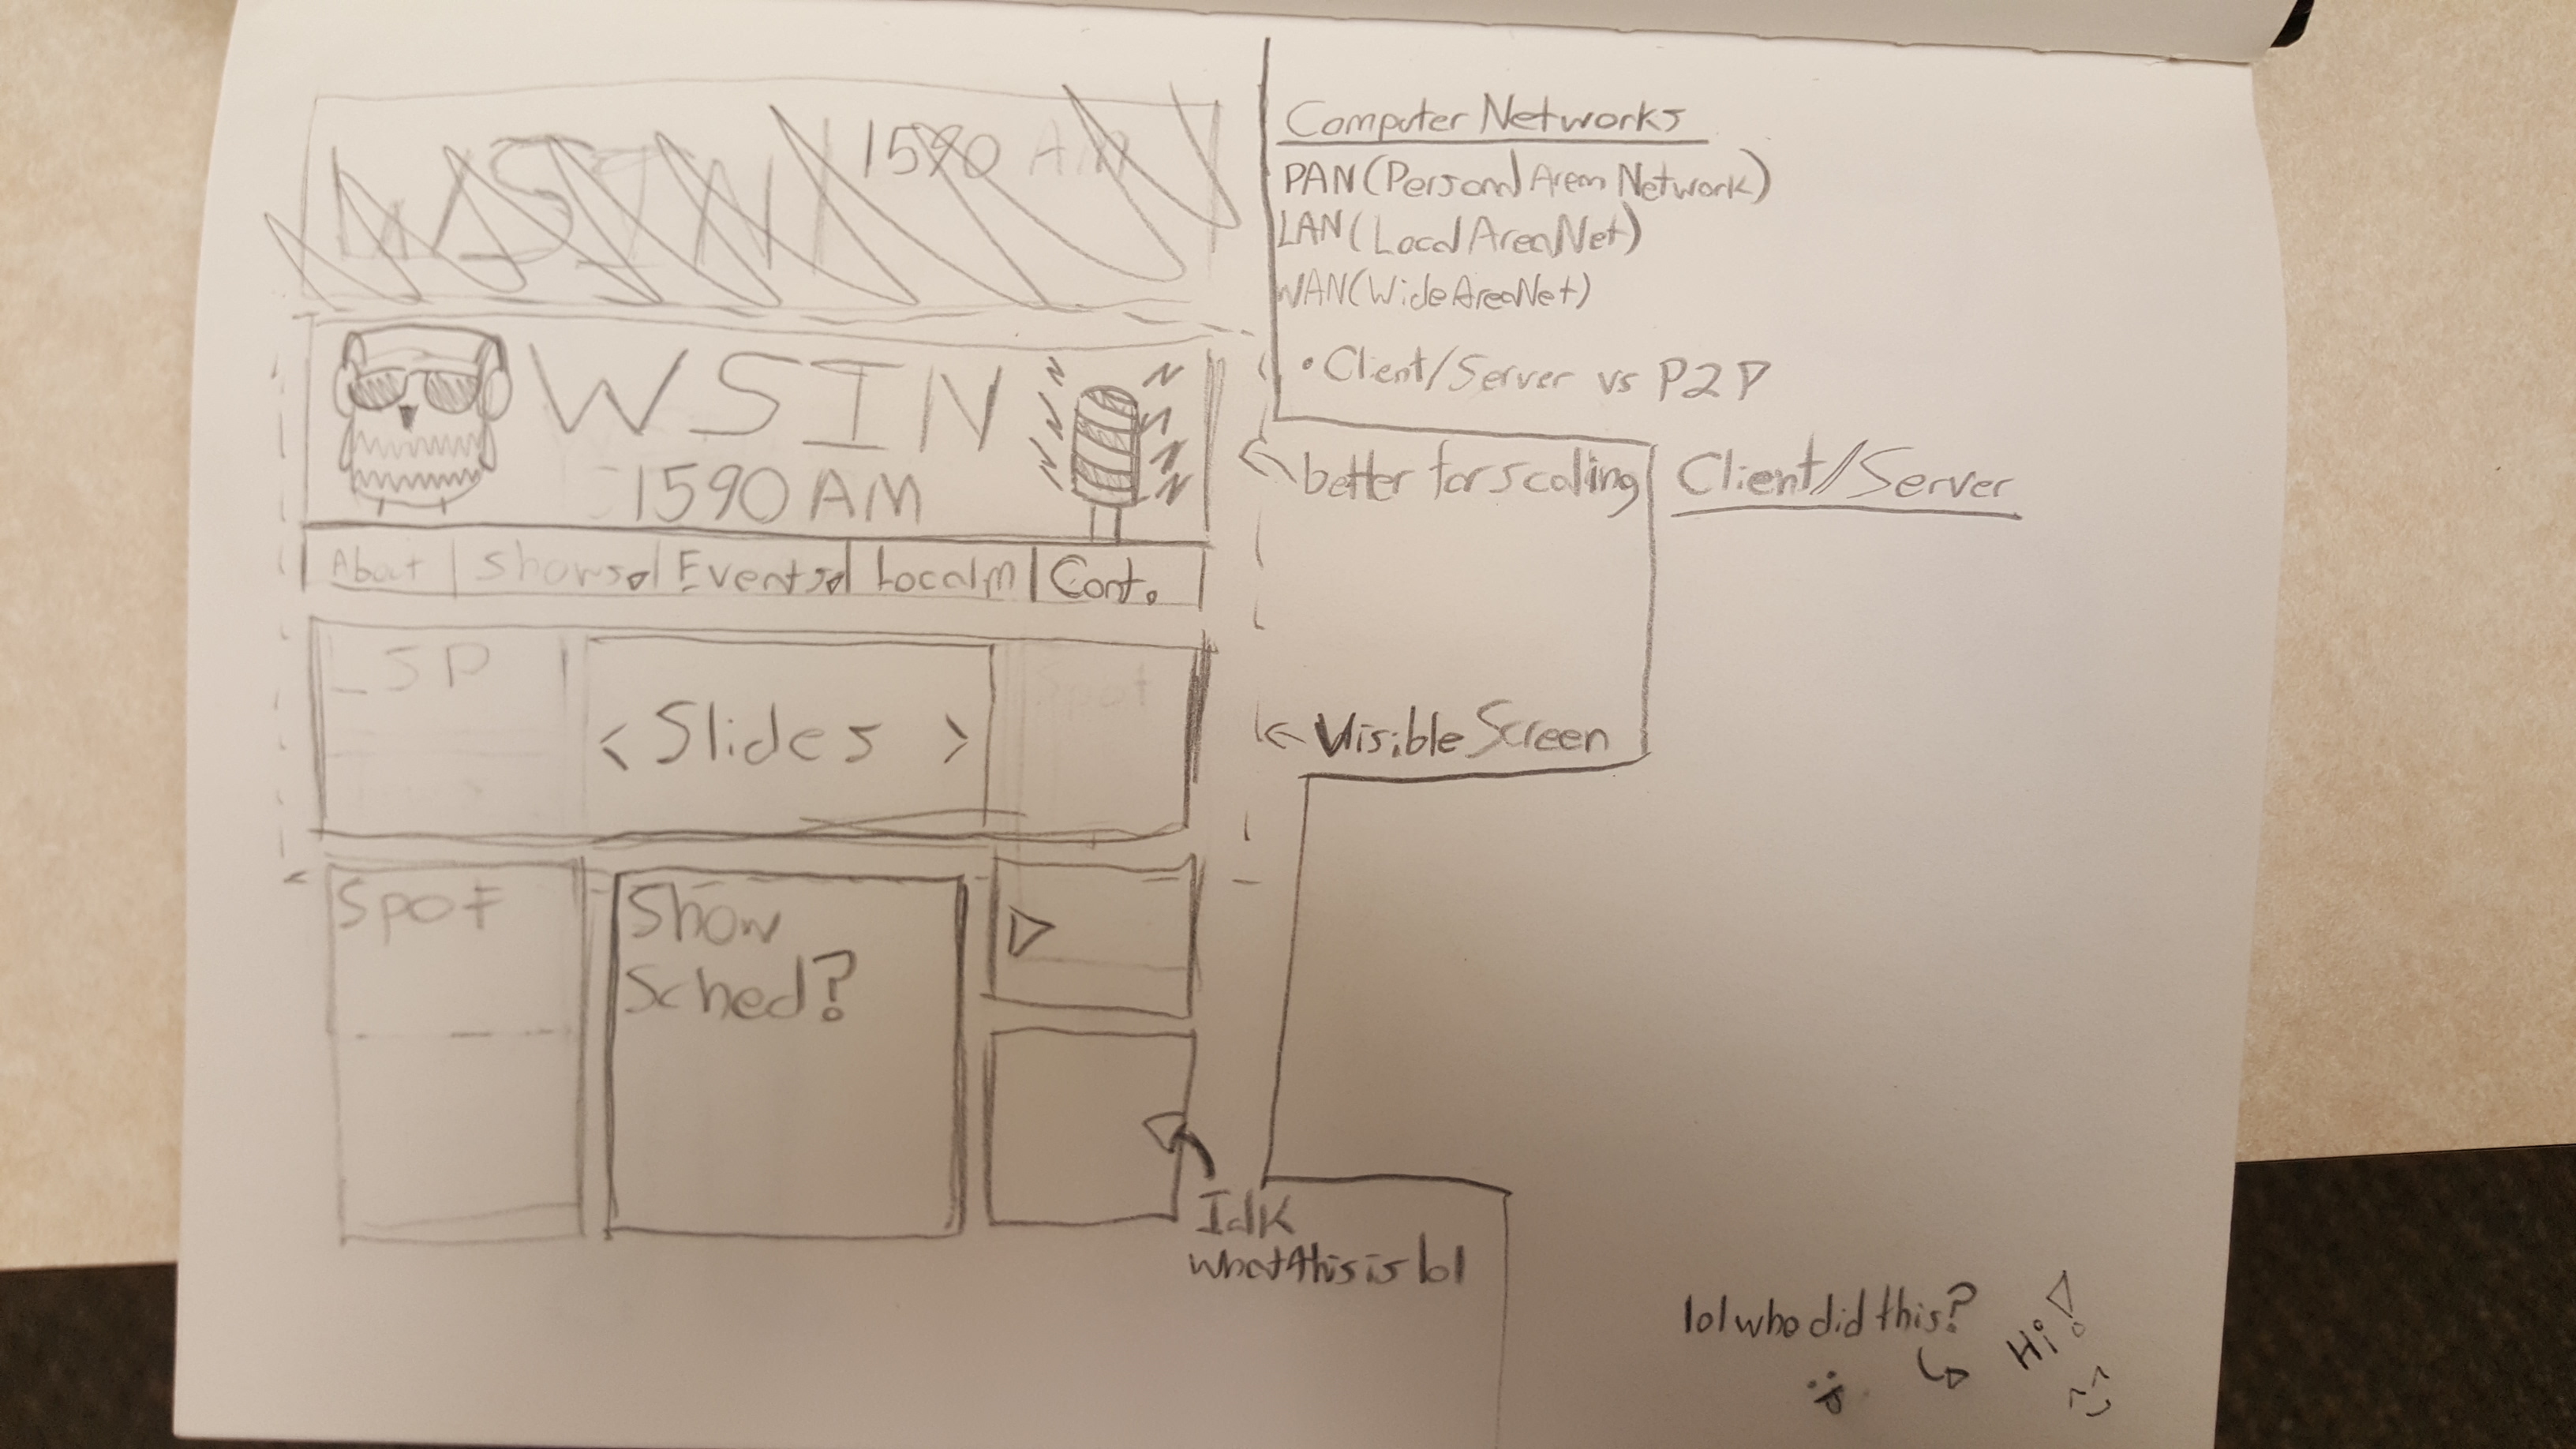 1590 AM
WSIN
1590 AM
About
Shows
Events
Localm
Cont.
LSP
< Slides >
Spot
Spot
Show
Sched?
Idk
what this is lol
Computer Networks
PAN (Personal Area Network)
LAN (Local Area Net)
WAN (Wide Area Net)
• Client/Server vs P2P
better for scaling
Client/Server
Visible Screen
lol who did this?
Hi!